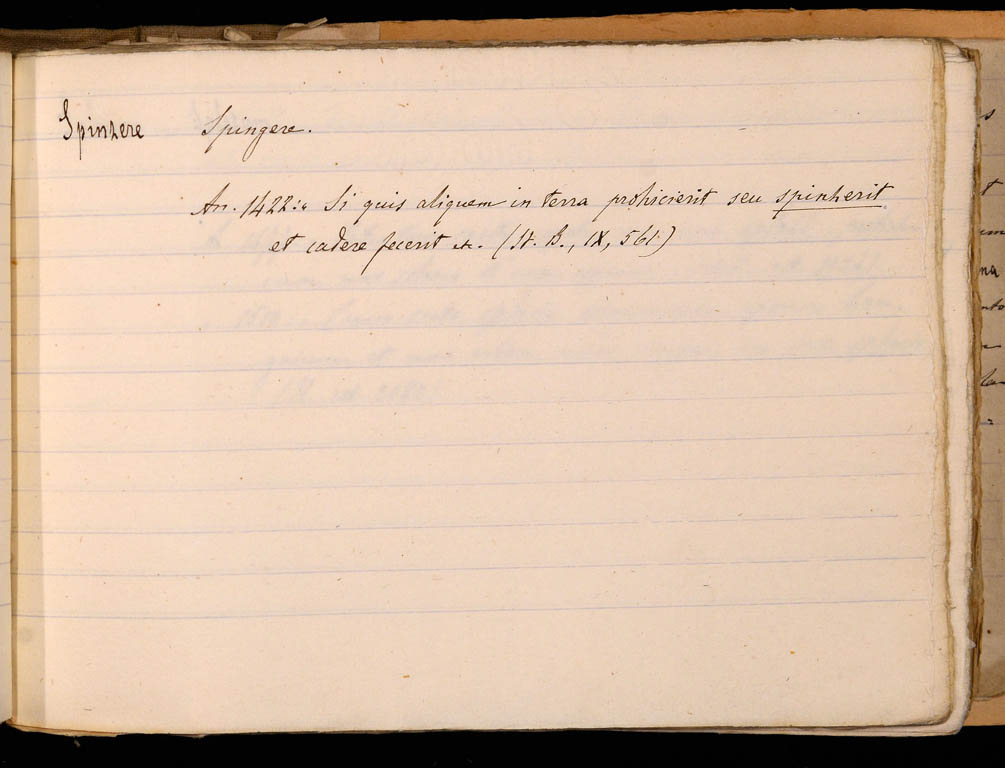 Spinzere Spingere.
An. 1422: « Si quis aliquem in terra prohicierit seu spinzerit
et cadere fecerit etc. (St. B., IX, 561)